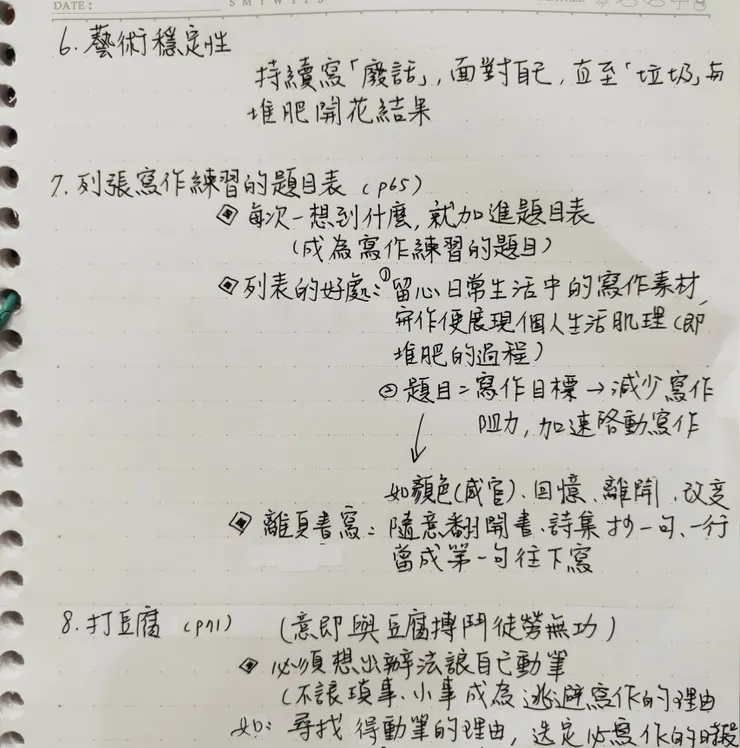 DATE:
S M T W T F S
6. 藝術穩定性
持續寫「廢話」, 面對自己, 直至「垃圾」与
堆肥開花結果
7. 列張寫作練習的題目表 (p65)
每次一想到什麼, 就加進題目表
(成為寫作練習的題目)
列表的好處: ① 留心日常生活中的寫作素材,
寫作便展現個人生活肌理 (即
堆肥的過程)
② 題目=寫作目標 → 減少寫作
阻力, 加速啓動寫作
如顏色(感官)、回憶、離開、改变
離頁書寫: 隨意翻開書、詩集抄一句、一行
當成第一句往下寫
8. 打豆腐 (p71) (意即與豆腐搏鬥徒勞無功)
必須想出辦法讓自己動筆
(不讓瑣事、小事成為逃避寫作的理由
如: 尋找 得動筆的理由, 选定必寫作的時段